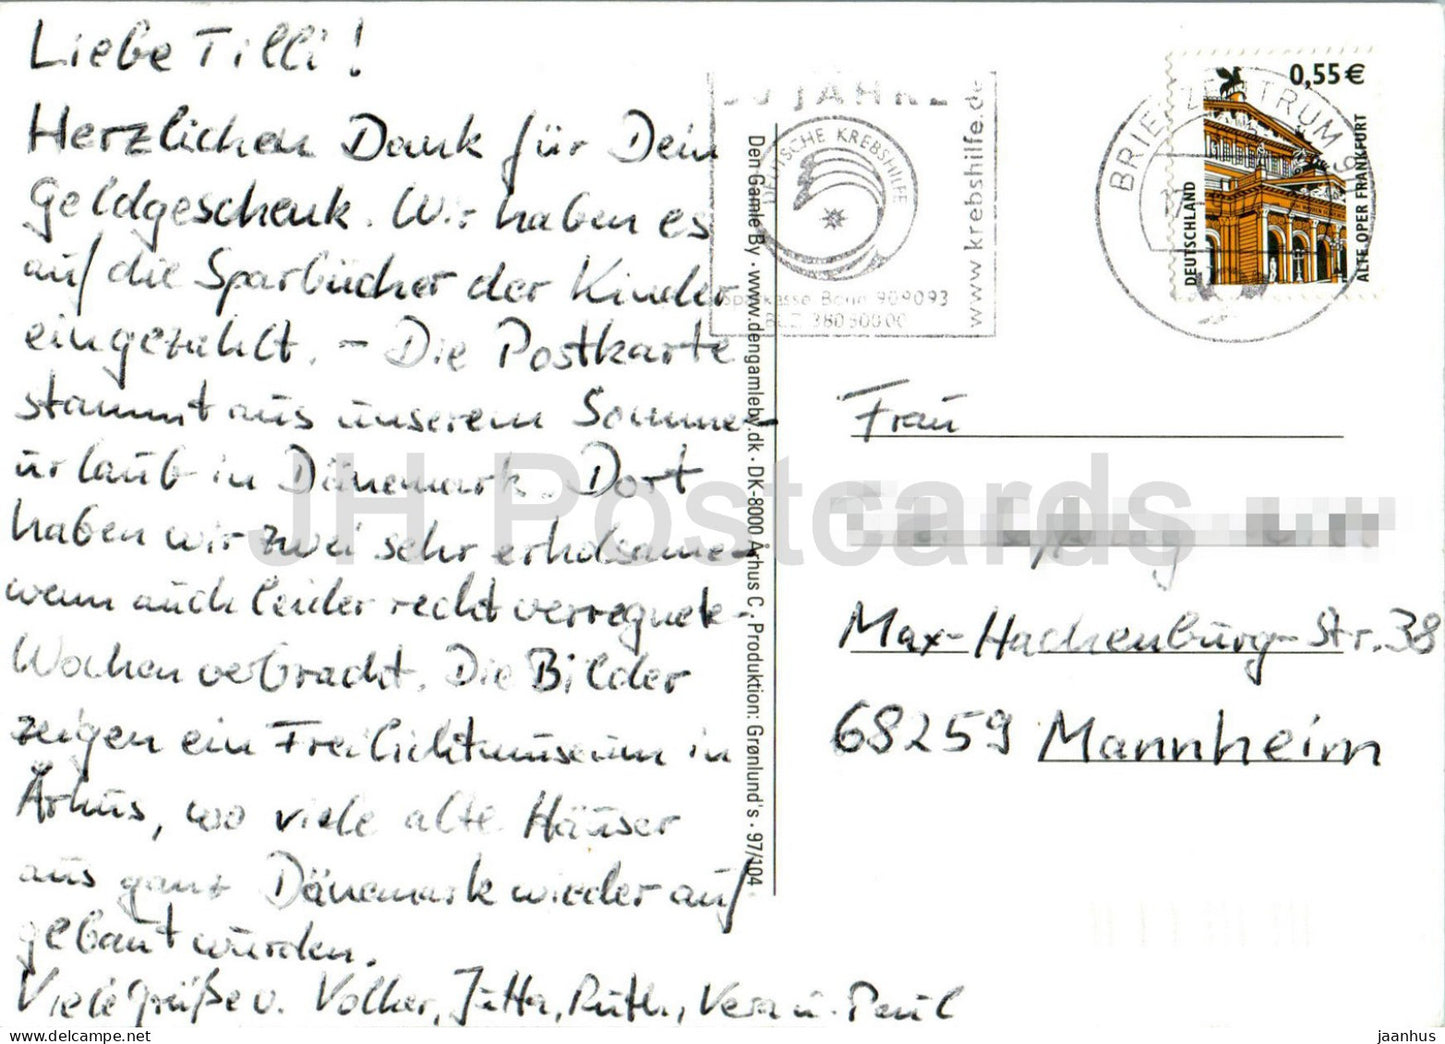 Liebe Tilli!
Herzlichen Dank für Dein
Geldgeschenk. Wir haben es
auf die Sparbücher der Kinder
eingezahlt. – Die Postkarte
stammt aus unserem Sommer-
urlaub in Dänemark. Dort
haben wir zwei sehr erholsame
wenn auch leider recht verregnete
Wochen verbracht. Die Bilder
zeigen ein Freilichtmuseum in
Århus, wo viele alte Häuser
aus ganz Dänemark wieder auf
gebaut wurden.
Viele Grüße v. Volker, Jutta, Ruth, Vera u. Paul
Den Gamle By · www.dengamleby.dk · DK-8000 Århus C. Produktion: Grønlund's · 97/104
JAHRE
DEUTSCHE KREBSHILFE
www.krebshilfe.de
Sparkasse Bonn 909093
BLZ 38050000
BRIEFZENTRUM
0,55 €
DEUTSCHLAND
ALTE OPER FRANKFURT
Frau
Max-Hachenburg-Str. 38
68259 Mannheim
JH Postcards
jaanhus